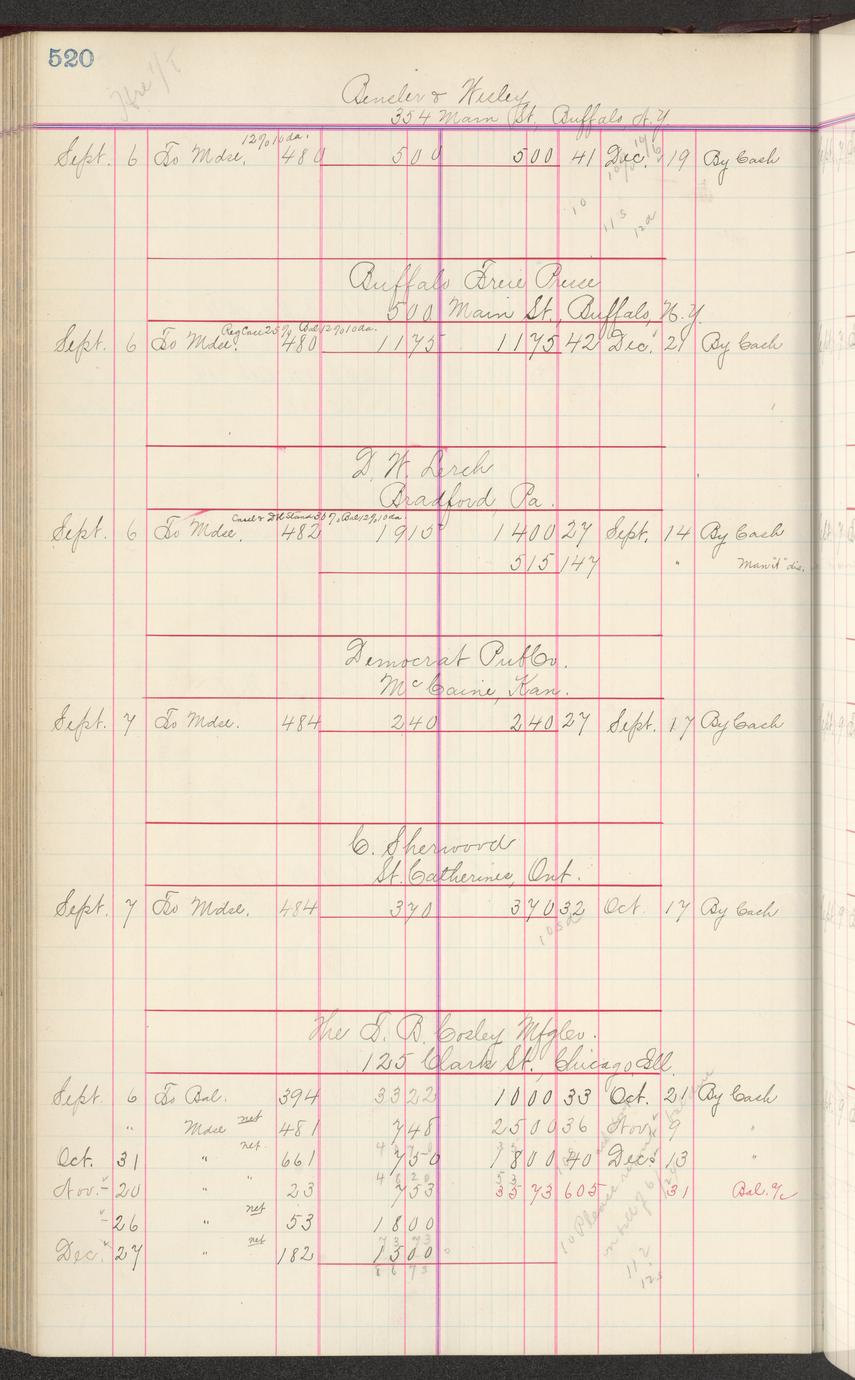 520
Bensler & Wesley
354 Main St., Buffalo, N.Y.
12% 10 da.
Sept. 6 To Mdse. 480 500 500 41 Dec. 19 By Cash
10
115
Buffalo Freie Presse
500 Main St., Buffalo, N.Y.
Reg Case 25% Bal 12% 10 da.
Sept. 6 To Mdse. 480 1175 1175 42 Dec. 21 By Cash
D. W. Lerch
Bradford, Pa.
Stand 30% Bal 12% 10 da
Sept. 6 To Mdse. 482 1915 1400 27 Sept. 14 By Cash
515 147 " dis.
Democrat Pub Co.
McCaine, Kan.
Sept. 7 To Mdse. 484 240 240 27 Sept. 17 By Cash
C. Sherwood
St. Catherines, Ont.
Sept. 7 To Mdse. 484 370 370 32 Oct. 17 By Cash
The T. B. Cosley Mfg Co.
125 Clark St., Chicago, Ill.
Sept. 6 To Bal. 394 3322 1000 33 Oct. 21 By Cash
" Mdse net 481 748 2500 36 Nov. 9 "
Oct. 31 " net 661 750 1800 40 Dec. 13 "
Nov. 20 " " 23 753 3573 605 31 Bal. a/c
26 " net 53 1800
Dec. 27 " net 182 1300
8673